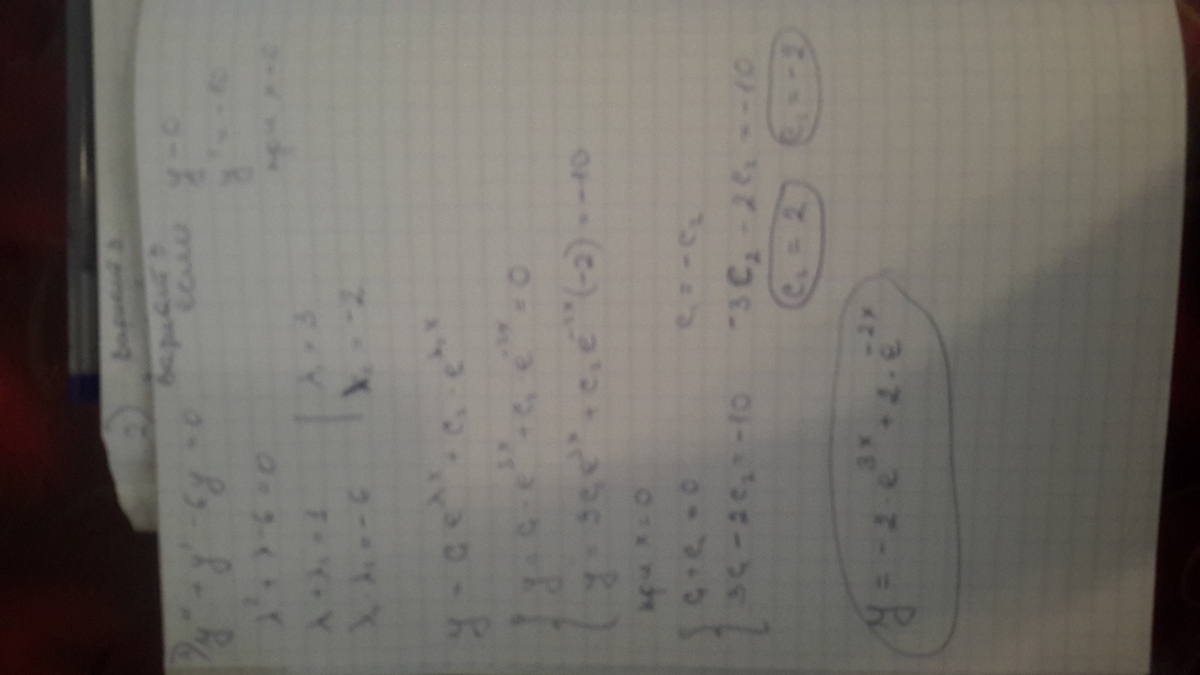 2) вариант 3
2) y" + y' - 6y = 0 вариант 3 если y = 0
y' = -10
при x = 0
λ² + λ - 6 = 0
λ₁ + λ₂ = 1 | λ₁ = 3
λ₁ · λ₂ = -6 | λ₂ = -2
y = C₁ e^λ₁x + C₂ · e^λ₂x
{ y = C₁ · e^3x + C₂ · e^-2x = 0
y = 3C₁ e^3x + C₂ e^-2x (-2) = -10
при x = 0
{ C₁ + C₂ = 0 C₁ = -C₂
3C₁ - 2C₂ = -10 -3C₂ - 2C₂ = -10
C₂ = 2 C₁ = -2
y = -2 · e^3x + 2 · e^-2x